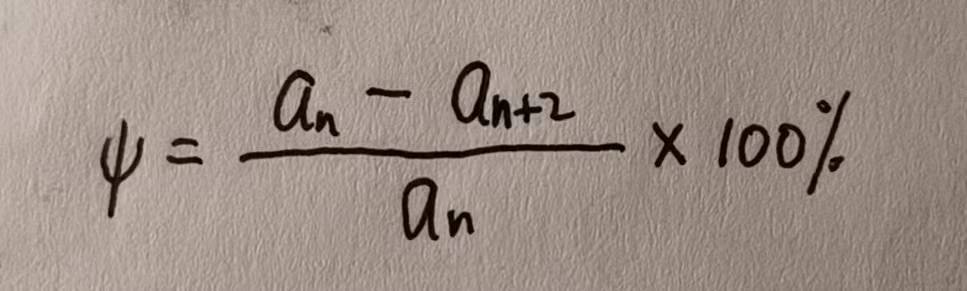 ψ = (aₙ − aₙ₊₂) / aₙ × 100%